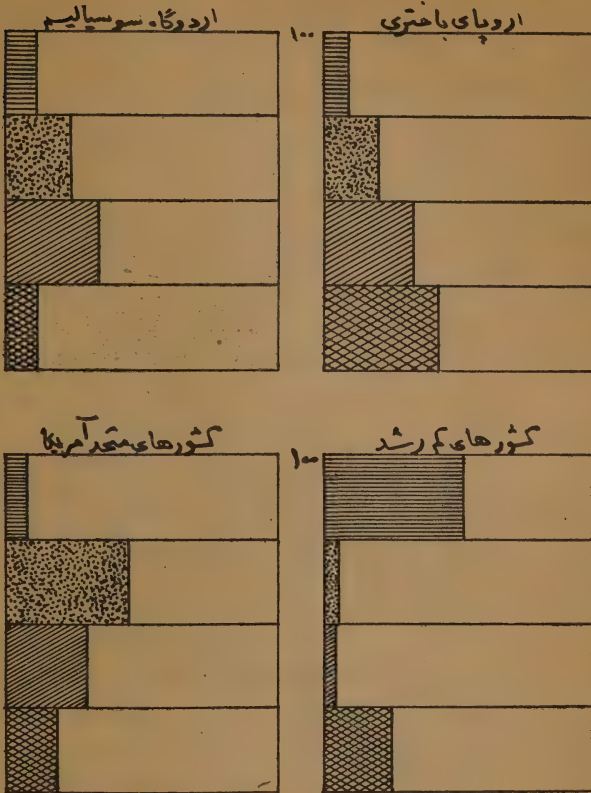 اروپای باختری
اردوگاه سوسیالیسم
۱۰۰
کشورهای کم رشد
کشورهای متحد آمریکا
۱۰۰